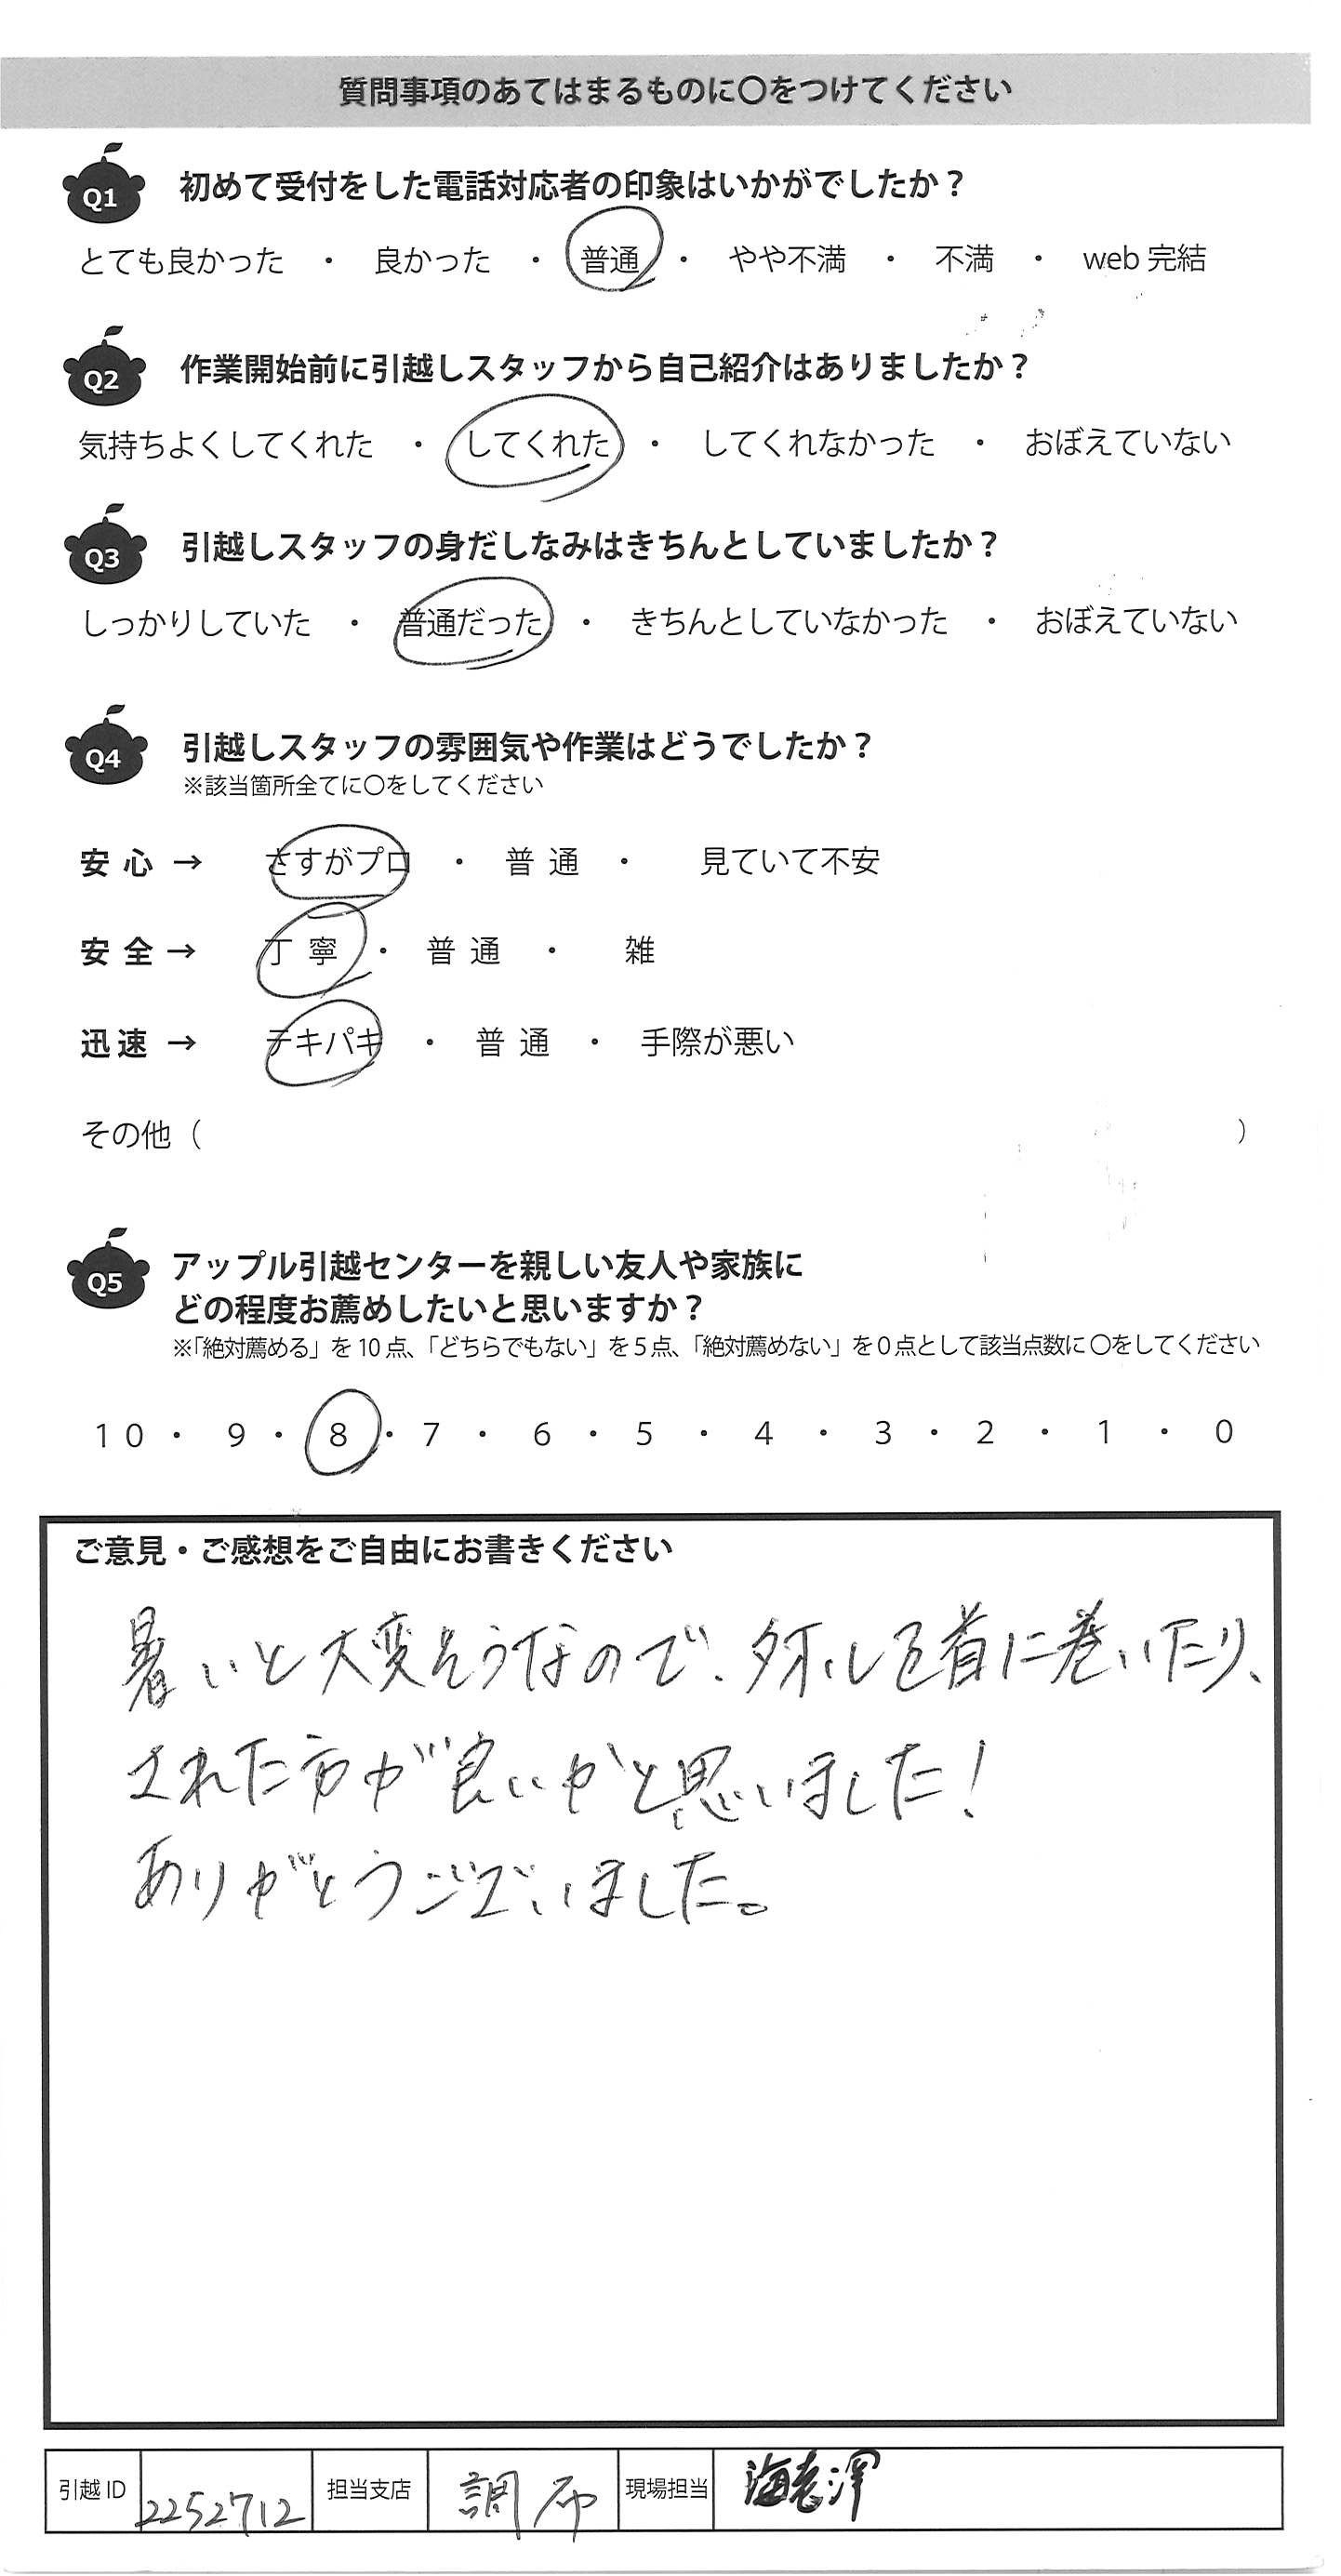 質問事項のあてはまるものに〇をつけてください
Q1 初めて受付をした電話対応者の印象はいかがでしたか？
とても良かった ・ 良かった ・ 普通 ・ やや不満 ・ 不満 ・ web 完結
Q2 作業開始前に引越しスタッフから自己紹介はありましたか？
気持ちよくしてくれた ・ してくれた ・ してくれなかった ・ おぼえていない
Q3 引越しスタッフの身だしなみはきちんとしていましたか？
しっかりしていた ・ 普通だった ・ きちんとしていなかった ・ おぼえていない
Q4 引越しスタッフの雰囲気や作業はどうでしたか？
※該当箇所全てに〇をしてください
安心 → さすがプロ ・ 普通 ・ 見ていて不安
安全 → 丁寧 ・ 普通 ・ 雑
迅速 → テキパキ ・ 普通 ・ 手際が悪い
その他（ ）
Q5 アップル引越センターを親しい友人や家族に
どの程度お薦めしたいと思いますか？
※「絶対薦める」を10点、「どちらでもない」を5点、「絶対薦めない」を0点として該当点数に〇をしてください
10 ・ 9 ・ 8 ・ 7 ・ 6 ・ 5 ・ 4 ・ 3 ・ 2 ・ 1 ・ 0
ご意見・ご感想をご自由にお書きください
暑いと大変そうなので、タオルを首に巻いたり、
された方が良いかと思いました！
ありがとうございました。
引越ID 2252712 担当支店 調布 現場担当 海老澤